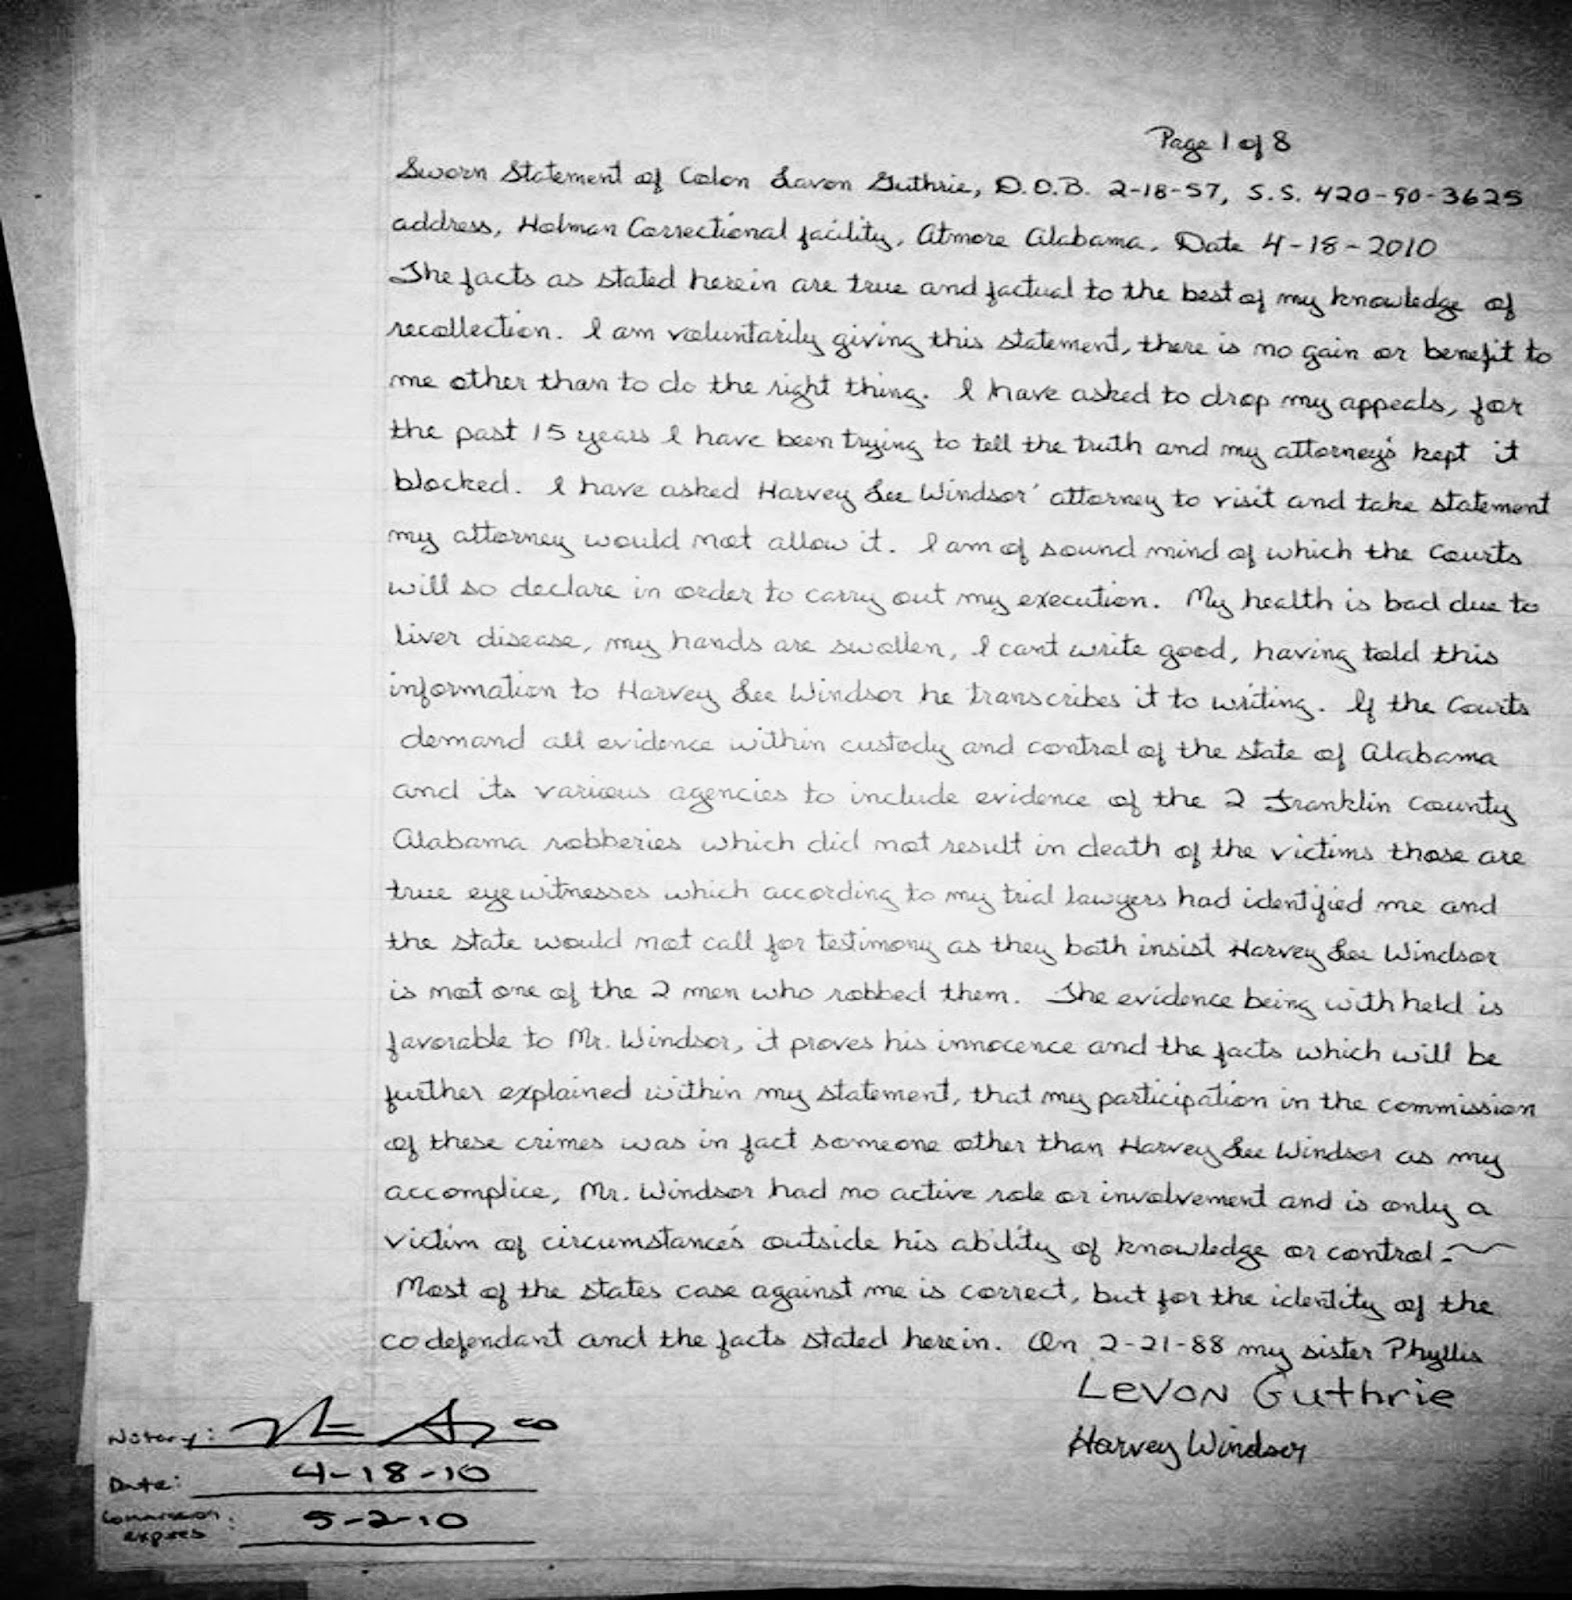 Page 1 of 8
Sworn Statement of Colon Lavon Guthrie, D.O.B. 2-18-57, S.S. 420-90-3625
address, Holman Correctional facility, Atmore Alabama, Date 4-18-2010
The facts as stated herein are true and factual to the best of my knowledge of
recollection. I am voluntarily giving this statement, there is no gain or benefit to
me other than to do the right thing. I have asked to drop my appeals, for
the past 15 years I have been trying to tell the truth and my attorney's kept it
blocked. I have asked Harvey Lee Windsor' attorney to visit and take statement
my attorney would not allow it. I am of sound mind of which the Courts
will so declare in order to carry out my execution. My health is bad due to
liver disease, my hands are swollen, I cant write good, having told this
information to Harvey Lee Windsor he transcribes it to writing. If the Courts
demand all evidence within custody and control of the state of Alabama
and its various agencies to include evidence of the 2 Franklin County
Alabama robberies which did not result in death of the victims those are
true eye witnesses which according to my trial lawyers had identified me and
the state would not call for testimony as they both insist Harvey Lee Windsor
is not one of the 2 men who robbed them. The evidence being withheld is
favorable to Mr. Windsor, it proves his innocence and the facts which will be
further explained within my statement, that my participation in the commission
of these crimes was in fact someone other than Harvey Lee Windsor as my
accomplice, Mr. Windsor had no active role or involvement and is only a
victim of circumstance's outside his ability of knowledge or control.
Most of the states case against me is correct, but for the identity of the
codefendant and the facts stated herein. On 2-21-88 my sister Phyllis
Levon Guthrie
Harvey Windsor
Notary:
Date: 4-18-10
Commission expires: 5-2-10